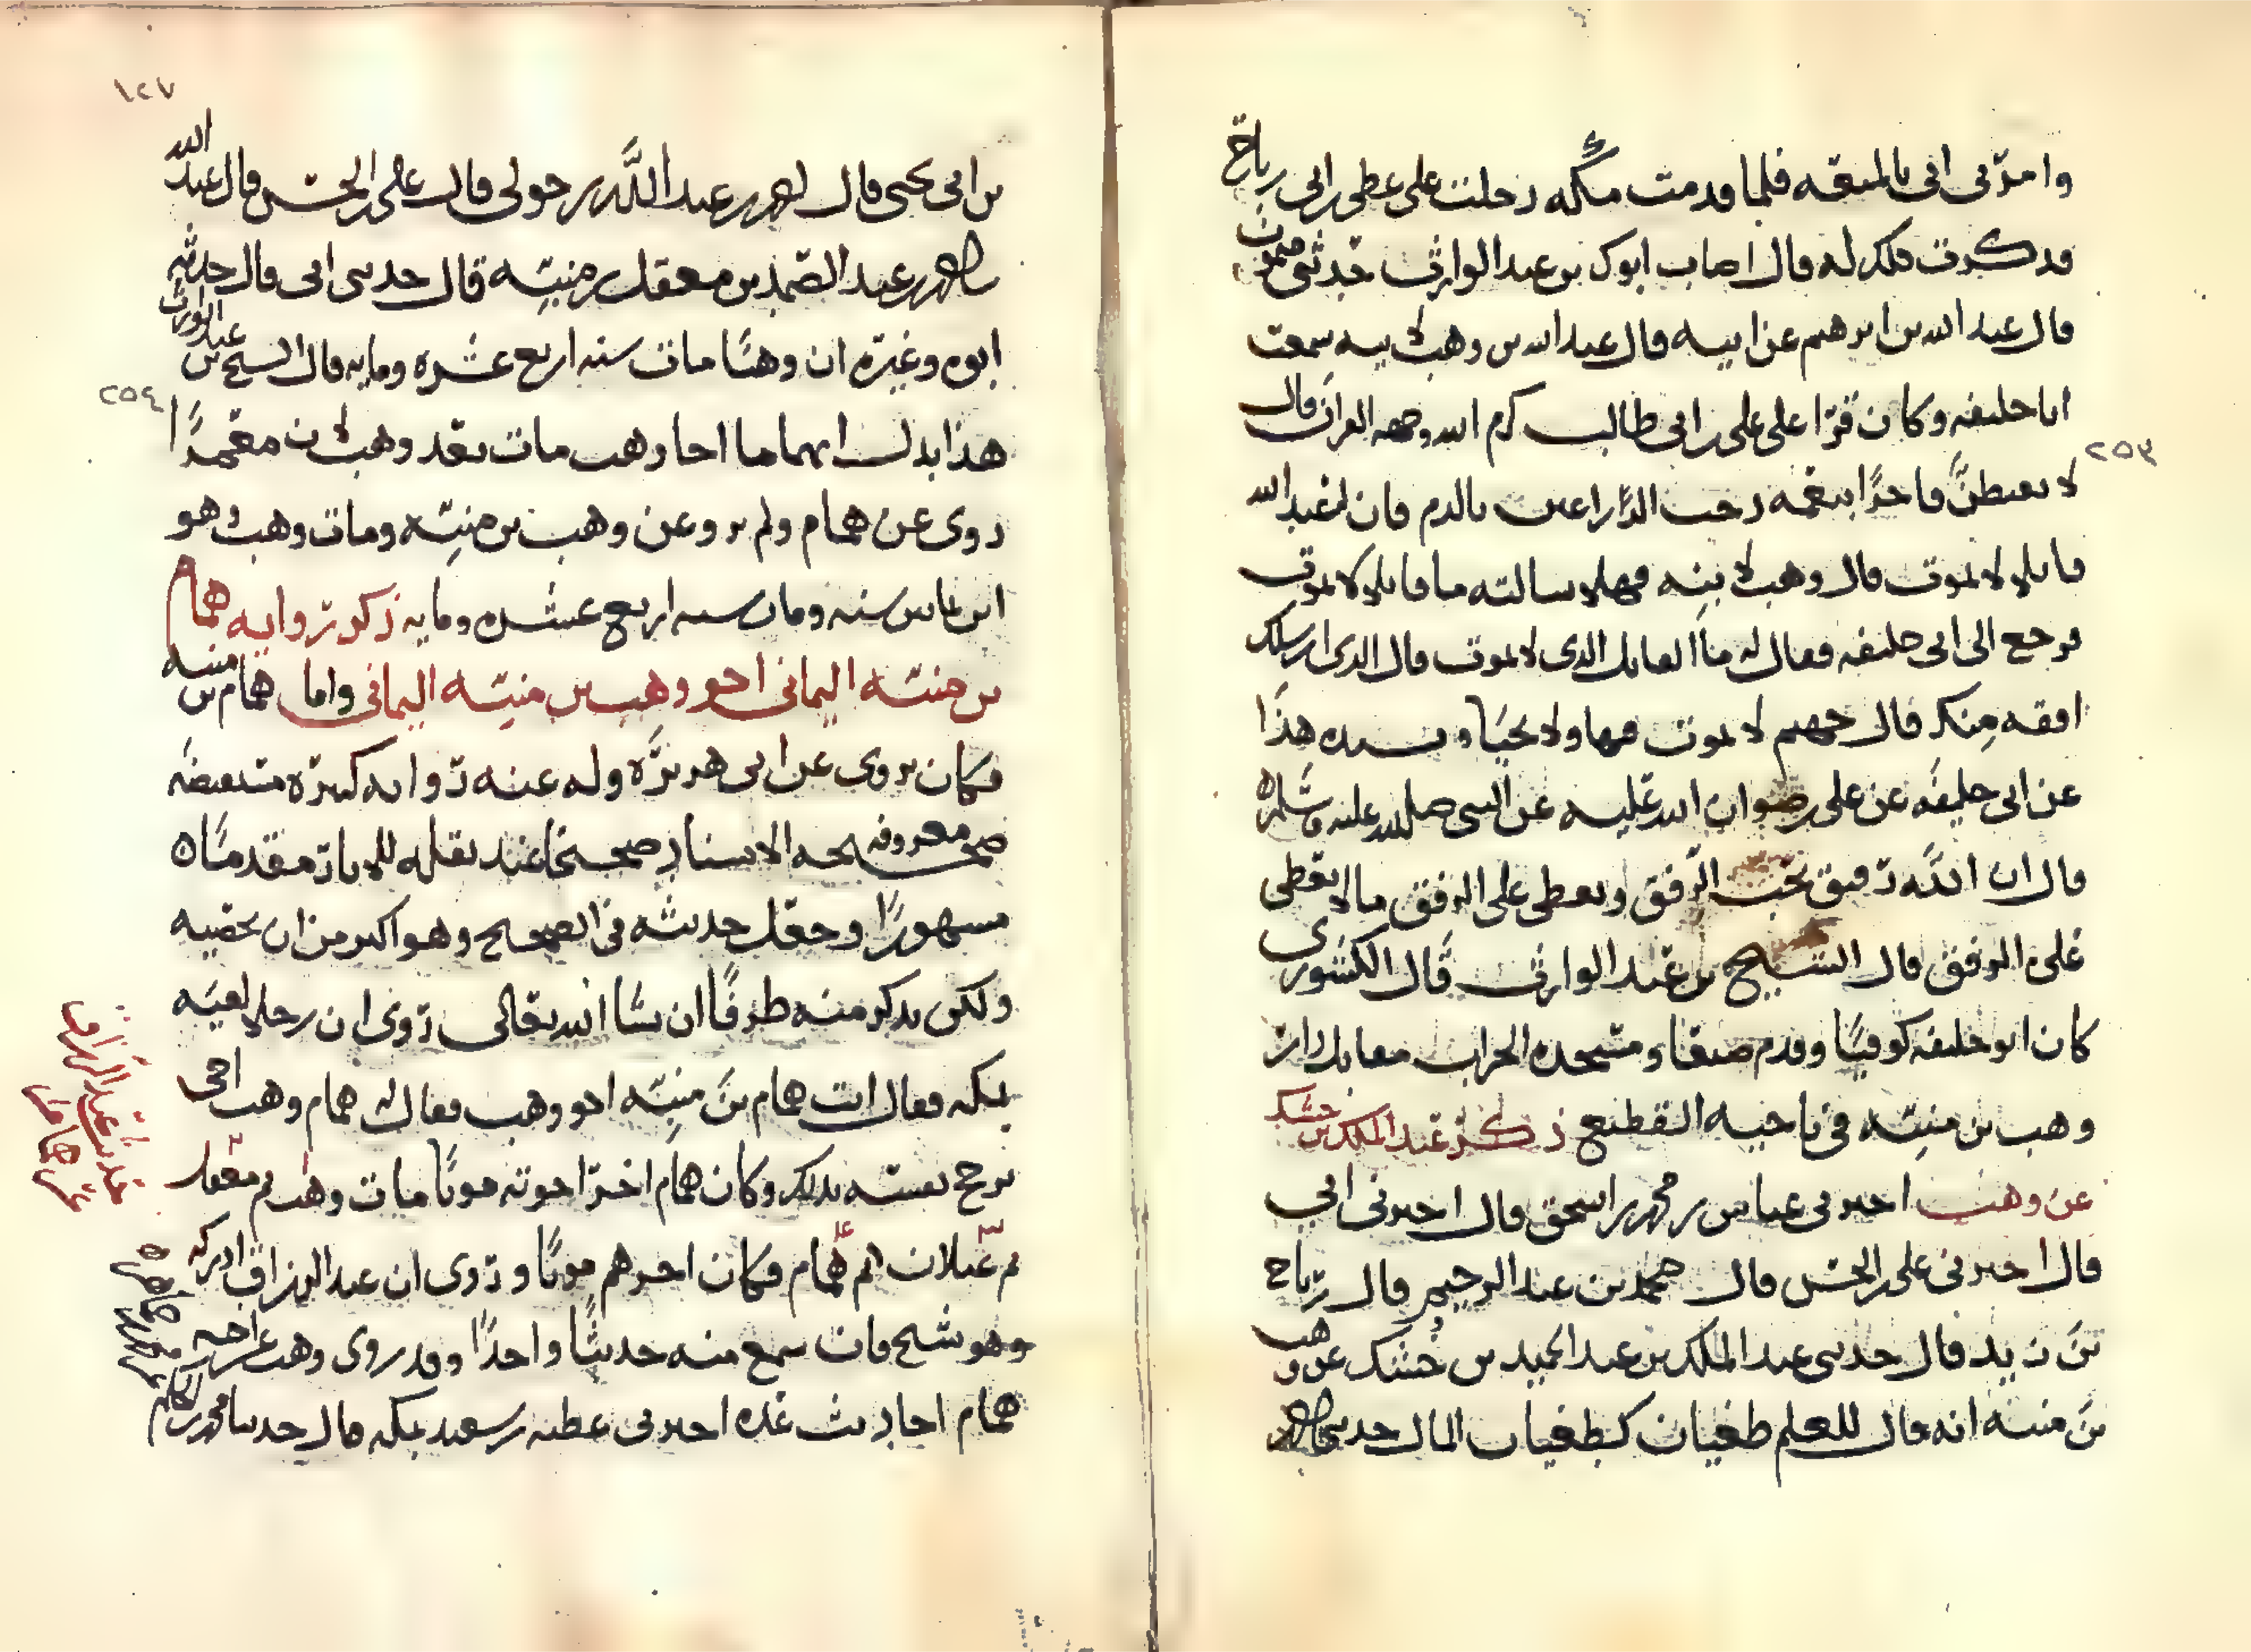 وامرني ابي بالمتعه فلما قدمت مكه دخلت على عطى بن ابي رباح
فذكرت ذلك له فقال اصاب ابوك بن عبد الوارث حدثني ميمون
قال عبد الله بن ابرهيم عن ابيه قال عبد الله بن وهب لابيه سمعت
ابا خليفه وكان قرا على علي بن ابي طالب كرم الله وجهه القران قال
لا تغبطن فاجرا بنعمه رحب الذراعين بالدم فان له عند الله
قاتلا لا يموت قال وهب لابنه فهلا سالته ما قاتلا لا يموت
فرجع الى ابي خليفه فقال له ما القاتل الذي لا يموت قال الذي ارسلك
افقه منك قال جهنم لا يموت فيها ولا يحيا هذا
عن ابي خليفه عن علي رضوان الله عليه عن النبي صلى الله عليه وسلم
قال ان الله رفيق يحب الرفق ويعطي على الرفق ما لا يعطي
على الرفق قال الشيخ بن عبد الوارث قال الكشوري
كان ابو خليفه كوفيا وقدم صنعا ومسجده الخراب مقابل دار
وهب بن منبه في ناحيه القطيع ذكر عبد الملك بن خشك
عن وهب اخبرني عباس بن محمد بن اسحق قال اخبرني ابي
قال اخبرني علي بن الحسن قال محمد بن عبد الرحيم قال رباح
بن زيد قال حدثني عبد الملك بن عبد الحميد بن خشك عن وهب
بن منبه انه قال للعلم طغيان كطغيان المال حدثنا محمد
٢٥٣
١٢٧
بن ابي يحيى قال محمد بن عبد الله بن حولي قال علي بن الحسن قال عبد الله
محمد بن عبد الصمد بن معقل بن منبه قال حدثني ابي قال حدثني
ابوه وغيره ان وهبا مات سنه اربع عشره ومايه قال الشيخ بن عبد الوارث
هذا يدل ان هماما اخا وهب مات بعد وهب لان معمرا
روى عن همام ولم يرو عن وهب بن منبه ومات وهب وهو
ابن ثمانين سنه ومات سنه اربع عشره ومايه ذكر روايه همام
بن منبه اليماني اخو وهب بن منبه اليماني واما همام بن منبه
فكان يروي عن ابي هريره وله عنه روايه كثيره مستفيضه
معروفه صحيحه الاسناد صحيحا عند نقله للاثار مقدما
مشهورا وجعل حديثه في الصحيح وهو اكبر من ان نحصيه
ولكن نذكر منه طرفا ان شا الله تعالى روى ان رجلا لقيه
بمكه فقال انت همام بن منبه اخو وهب فقال له همام وهب اخي
يرجح نفسه بذلك وكان همام اخر اخوته موتا مات وهب ثم معقل
ثم غيلان ثم همام فكان اخرهم موتا وروى ان عبد الرزاق ادركه
وهو شيخ فان سمع منه حديثا واحدا وقد روى وهب عن اخيه
همام احاديث عده اخبرني عطيه بن سعيد بمكه قال حدثنا محمد بن
٢٥٤